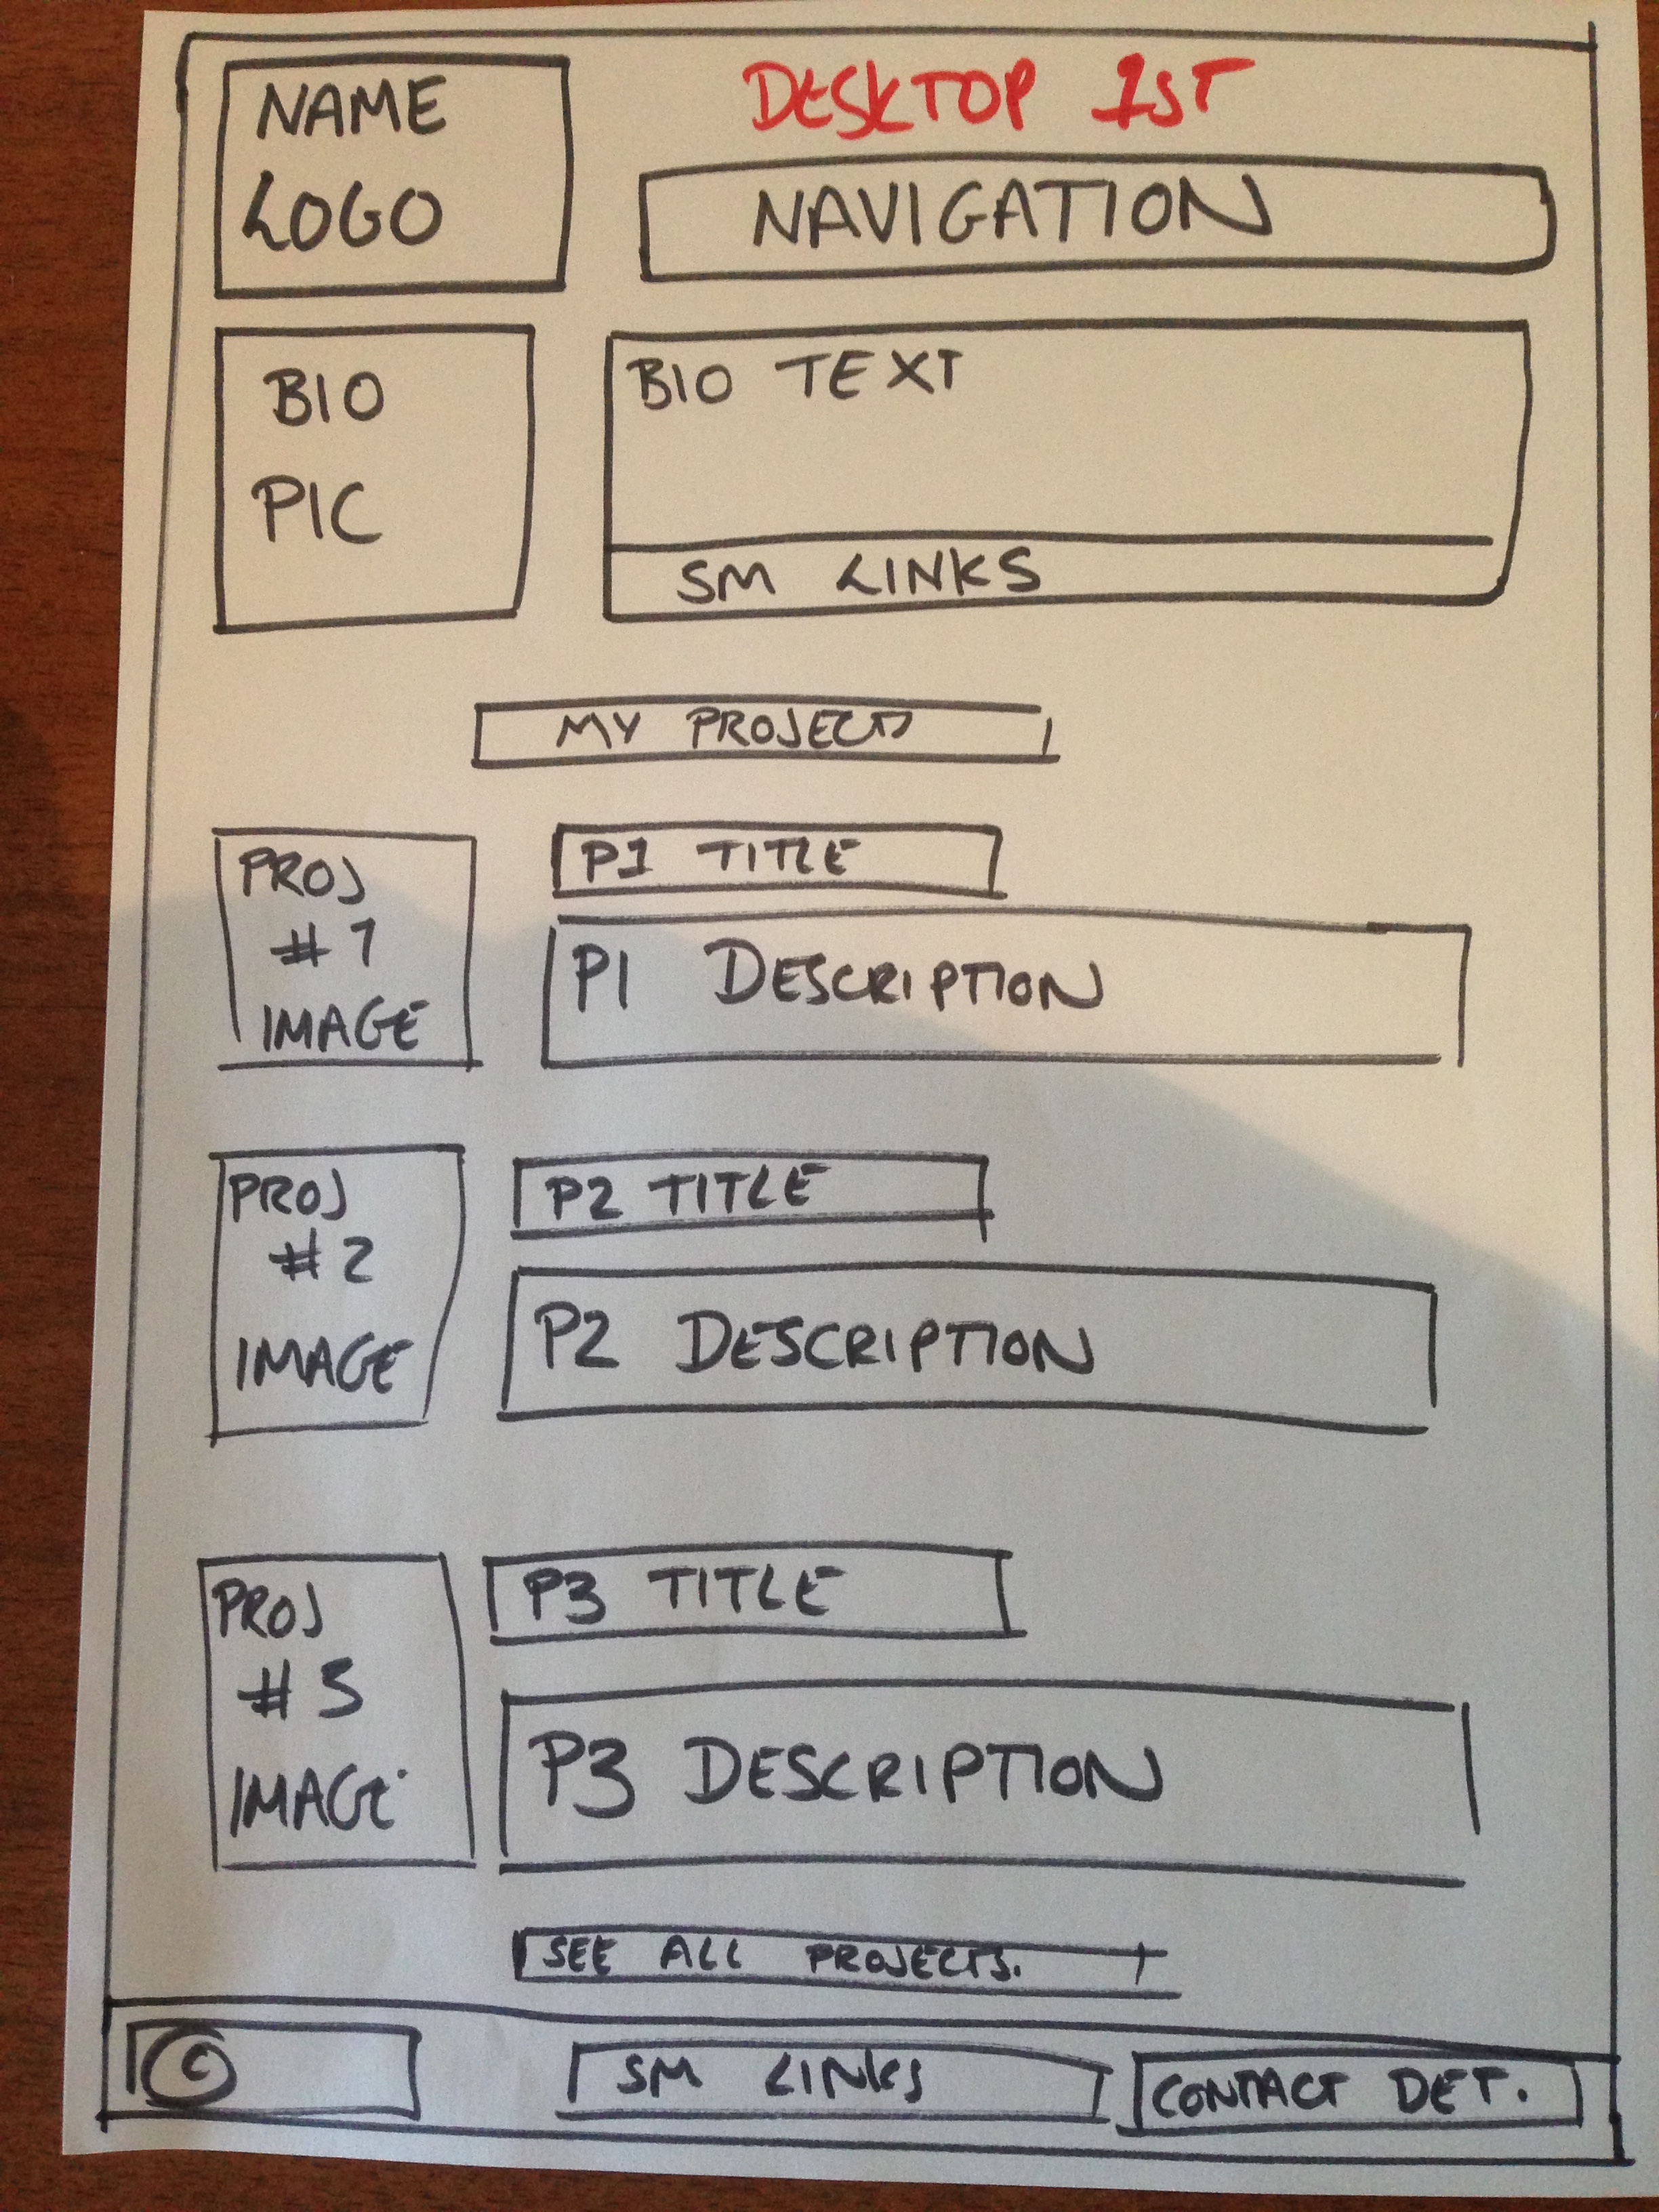 NAME
LOGO
DESKTOP 1ST
NAVIGATION
BIO
PIC
BIO TEXT
SM LINKS
MY PROJECTS
PROJ
#1
IMAGE
P1 TITLE
P1 DESCRIPTION
PROJ
#2
IMAGE
P2 TITLE
P2 DESCRIPTION
PROJ
#3
IMAGE
P3 TITLE
P3 DESCRIPTION
SEE ALL PROJECTS.
©
SM LINKS
CONTACT DET.